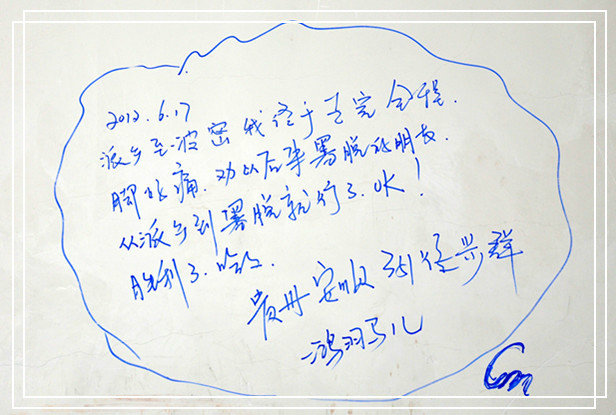 2012.6.17
派乡至波密我终于走完全程.
脚好痛.劝以后来墨脱的朋友.
从派乡到墨脱就行了.OK!
胜利了.哈哈.
贵州安顺 徒步群
鸿羽马儿